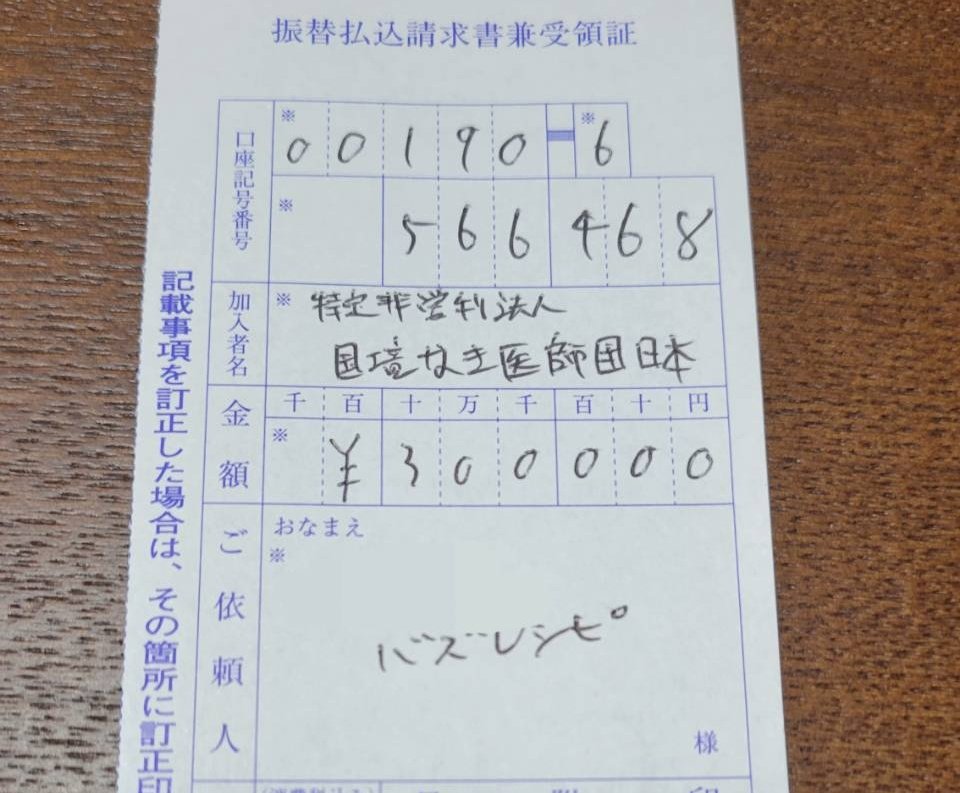 振替払込請求書兼受領証
口座記号番号
※ 00190-※6
※ 566468
加入者名
※ 特定非営利法人
国境なき医師団日本
金額
千 百 十 万 千 百 十 円
※ ¥300000
ご依頼人
おなまえ
※
バズレシピ
様
記載事項を訂正した場合は、その箇所に訂正印
(消費税込み)